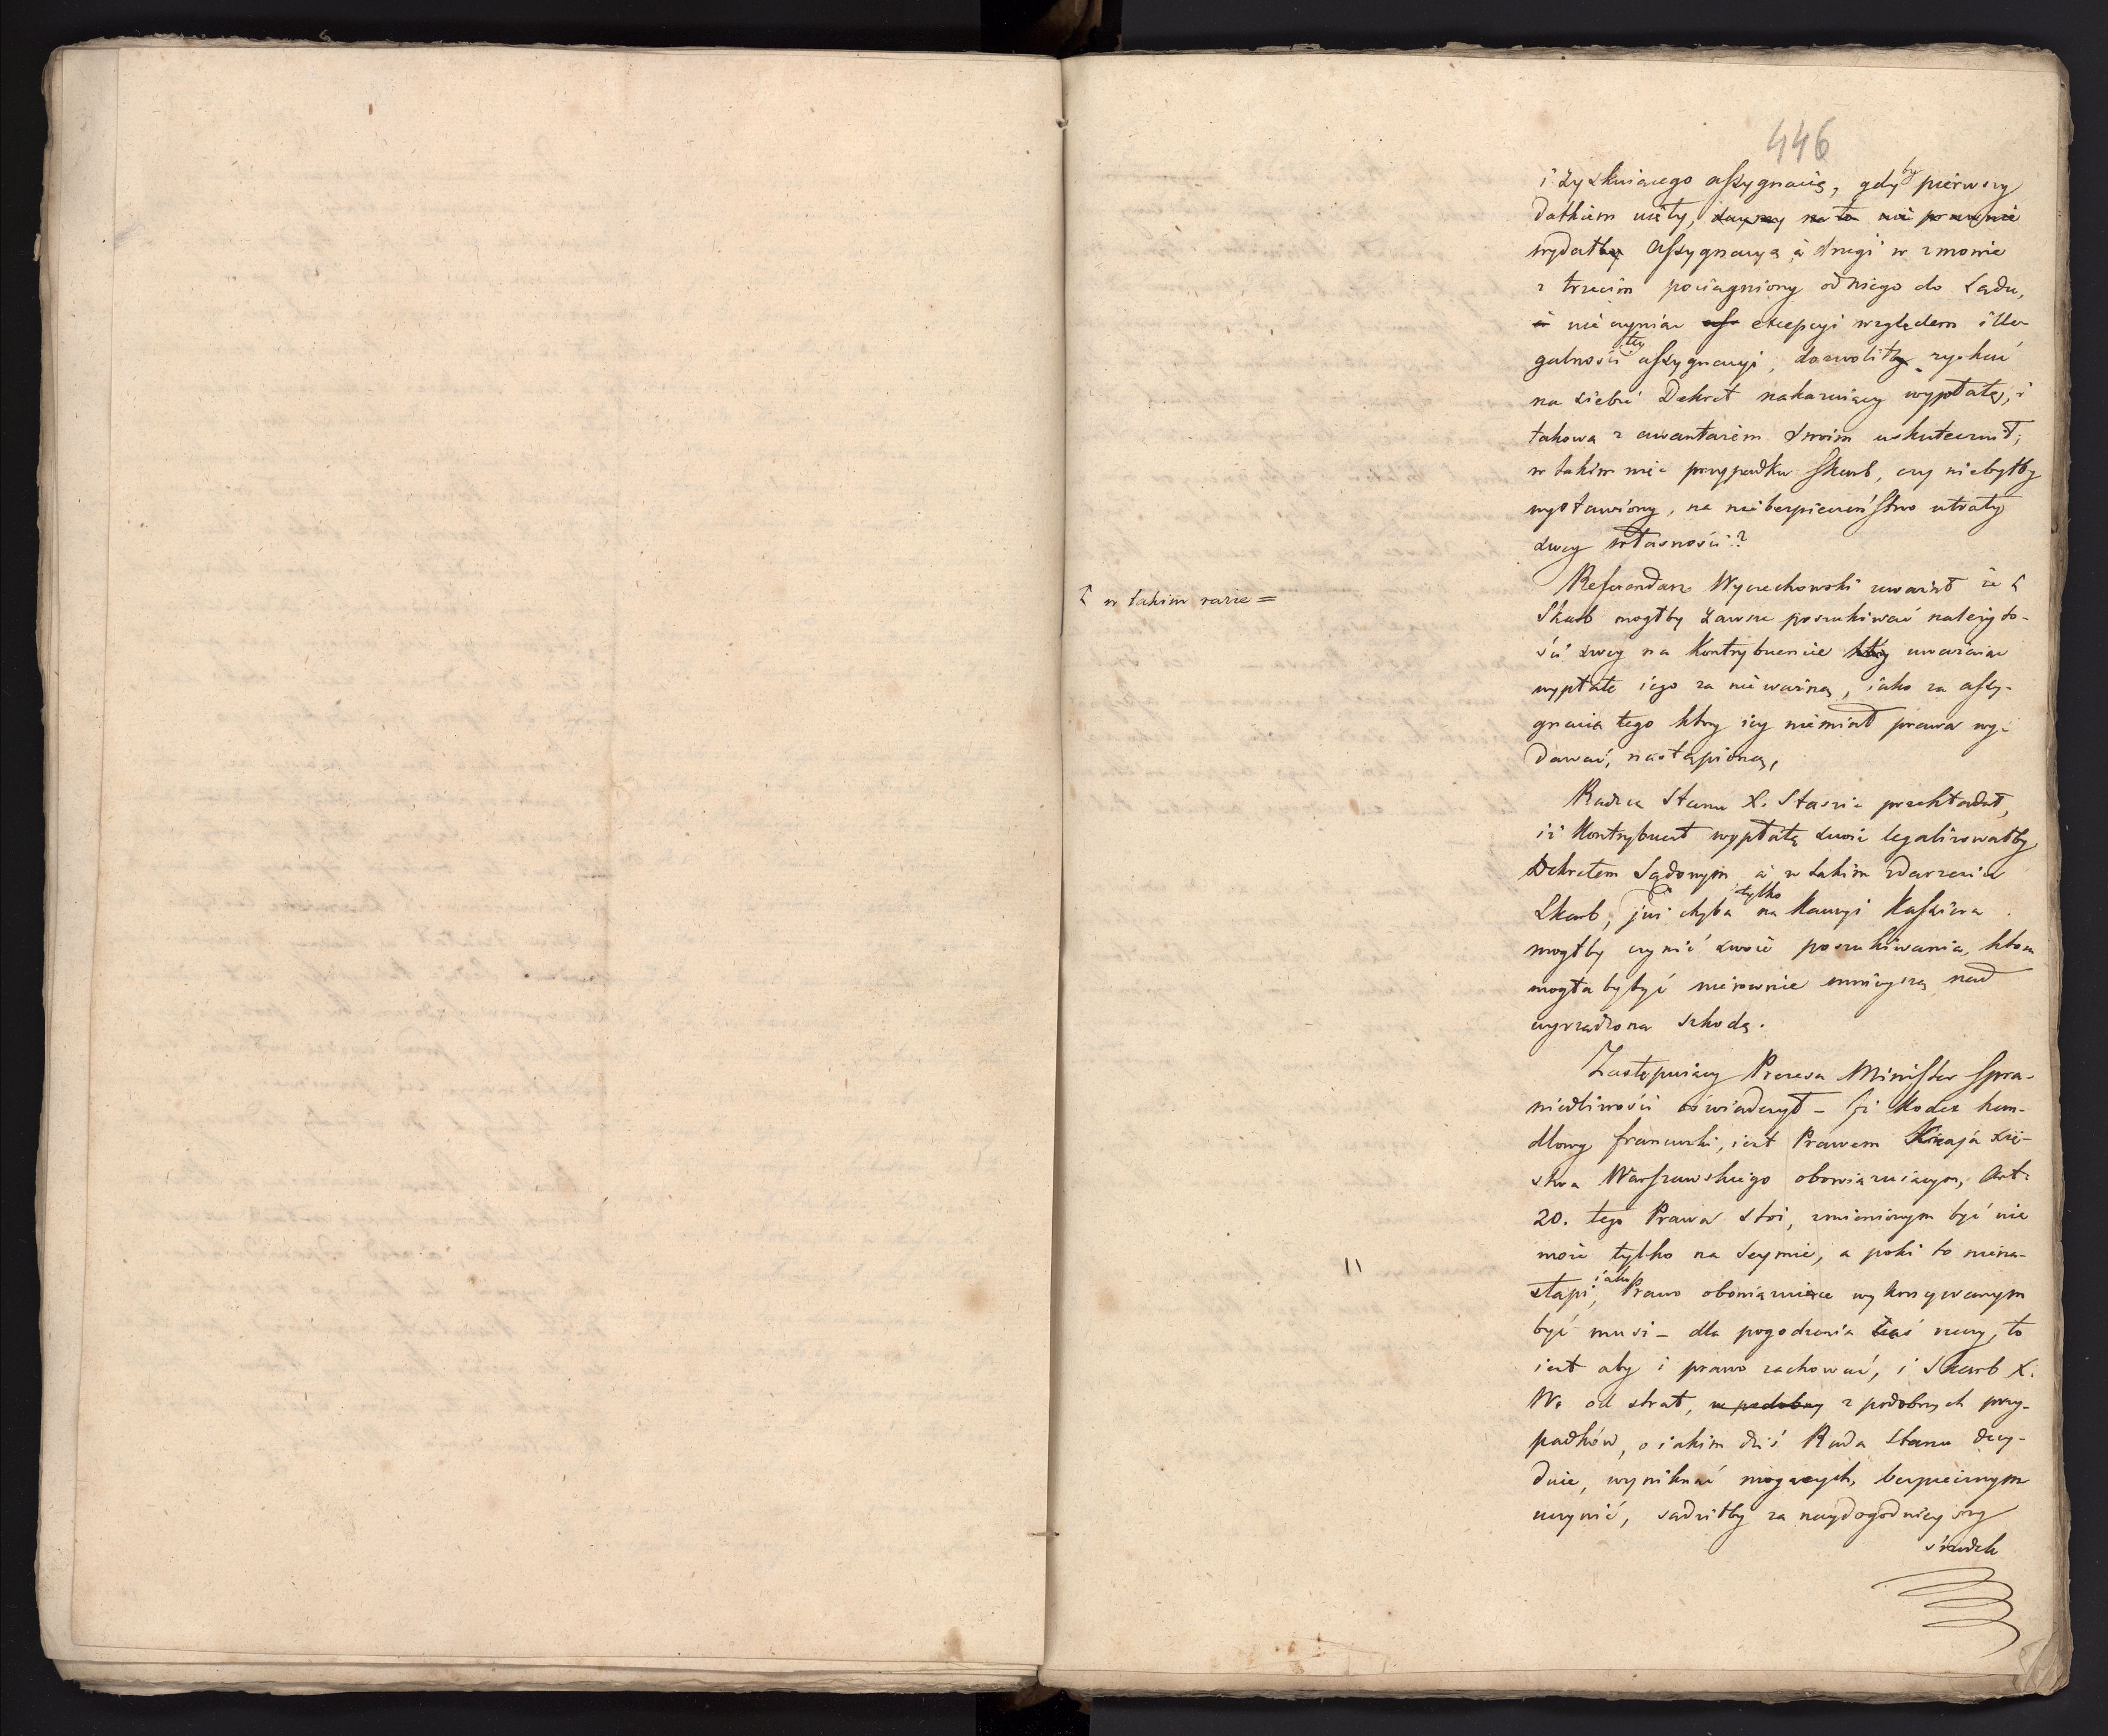 446
i zyskuiącego assygnacią, gdyby pierwszy
datkiem uięty,
wydał assygnacyą a drugi w zmowie
z trzecim pociągniony od niego do Sądu,
nie czyniąc excepcyi względem ille-
galności tey assygnacyi, dozwolił zyskać
na siebie Dekret nakazuiący wypłatę, i
takową z awantażem swoim uskutecznił;
w takim więc przypadku Skarb, czy niebyłby
wystawiony, na niebezpieczeństwo utraty
swey własności?
Referendarz Wyczechowski uważał że
w takim razie =
Skarb mogłby zawsze poszukiwać należyto-
ści swey na Kontrybuencie uważaiąc
wypłatę iego za nieważną, iako za assy-
gnacią tego ktory iey niemiał prawa wy-
dawać, nastąpioną,
Radca Stanu X. Staszic przekładał,
iż Kontrybuent wypłatę swoię legalizowałby
Dekretem Sądowym, a w takim zdarzeniu
Skarb, już chyba tylko na Kaucyi Kassiera
mogłby czynić swoie poszukiwania, ktora
mogłaby być nierownie mnieyszą nad
wyrządzoną szkodę.
Zastępuiący Prezesa Minister Spra-
wiedliwości oświadczył – Iż Kodex han-
dlowy francuski, iest Prawem Kraju Xię-
stwa Warszawskiego obowiązuiącym, Art.
20. tego Prawa stoi, zmienionym być nie
może tylko na Seymie, a poki to niena-
stąpi, iako Prawo obowiązuiące wykonywanym
być musi – dla pogodzenia teraź rzeczy, to
iest aby i prawo zachować, i Skarb X.
W. od strat, w podobny z podobnych przy-
padków, o iakim dziś Rada Stanu decy-
duie, wyniknąć mogących, bezpiecznym
uczynić, sądziłby za naydogodnieyszy
środek